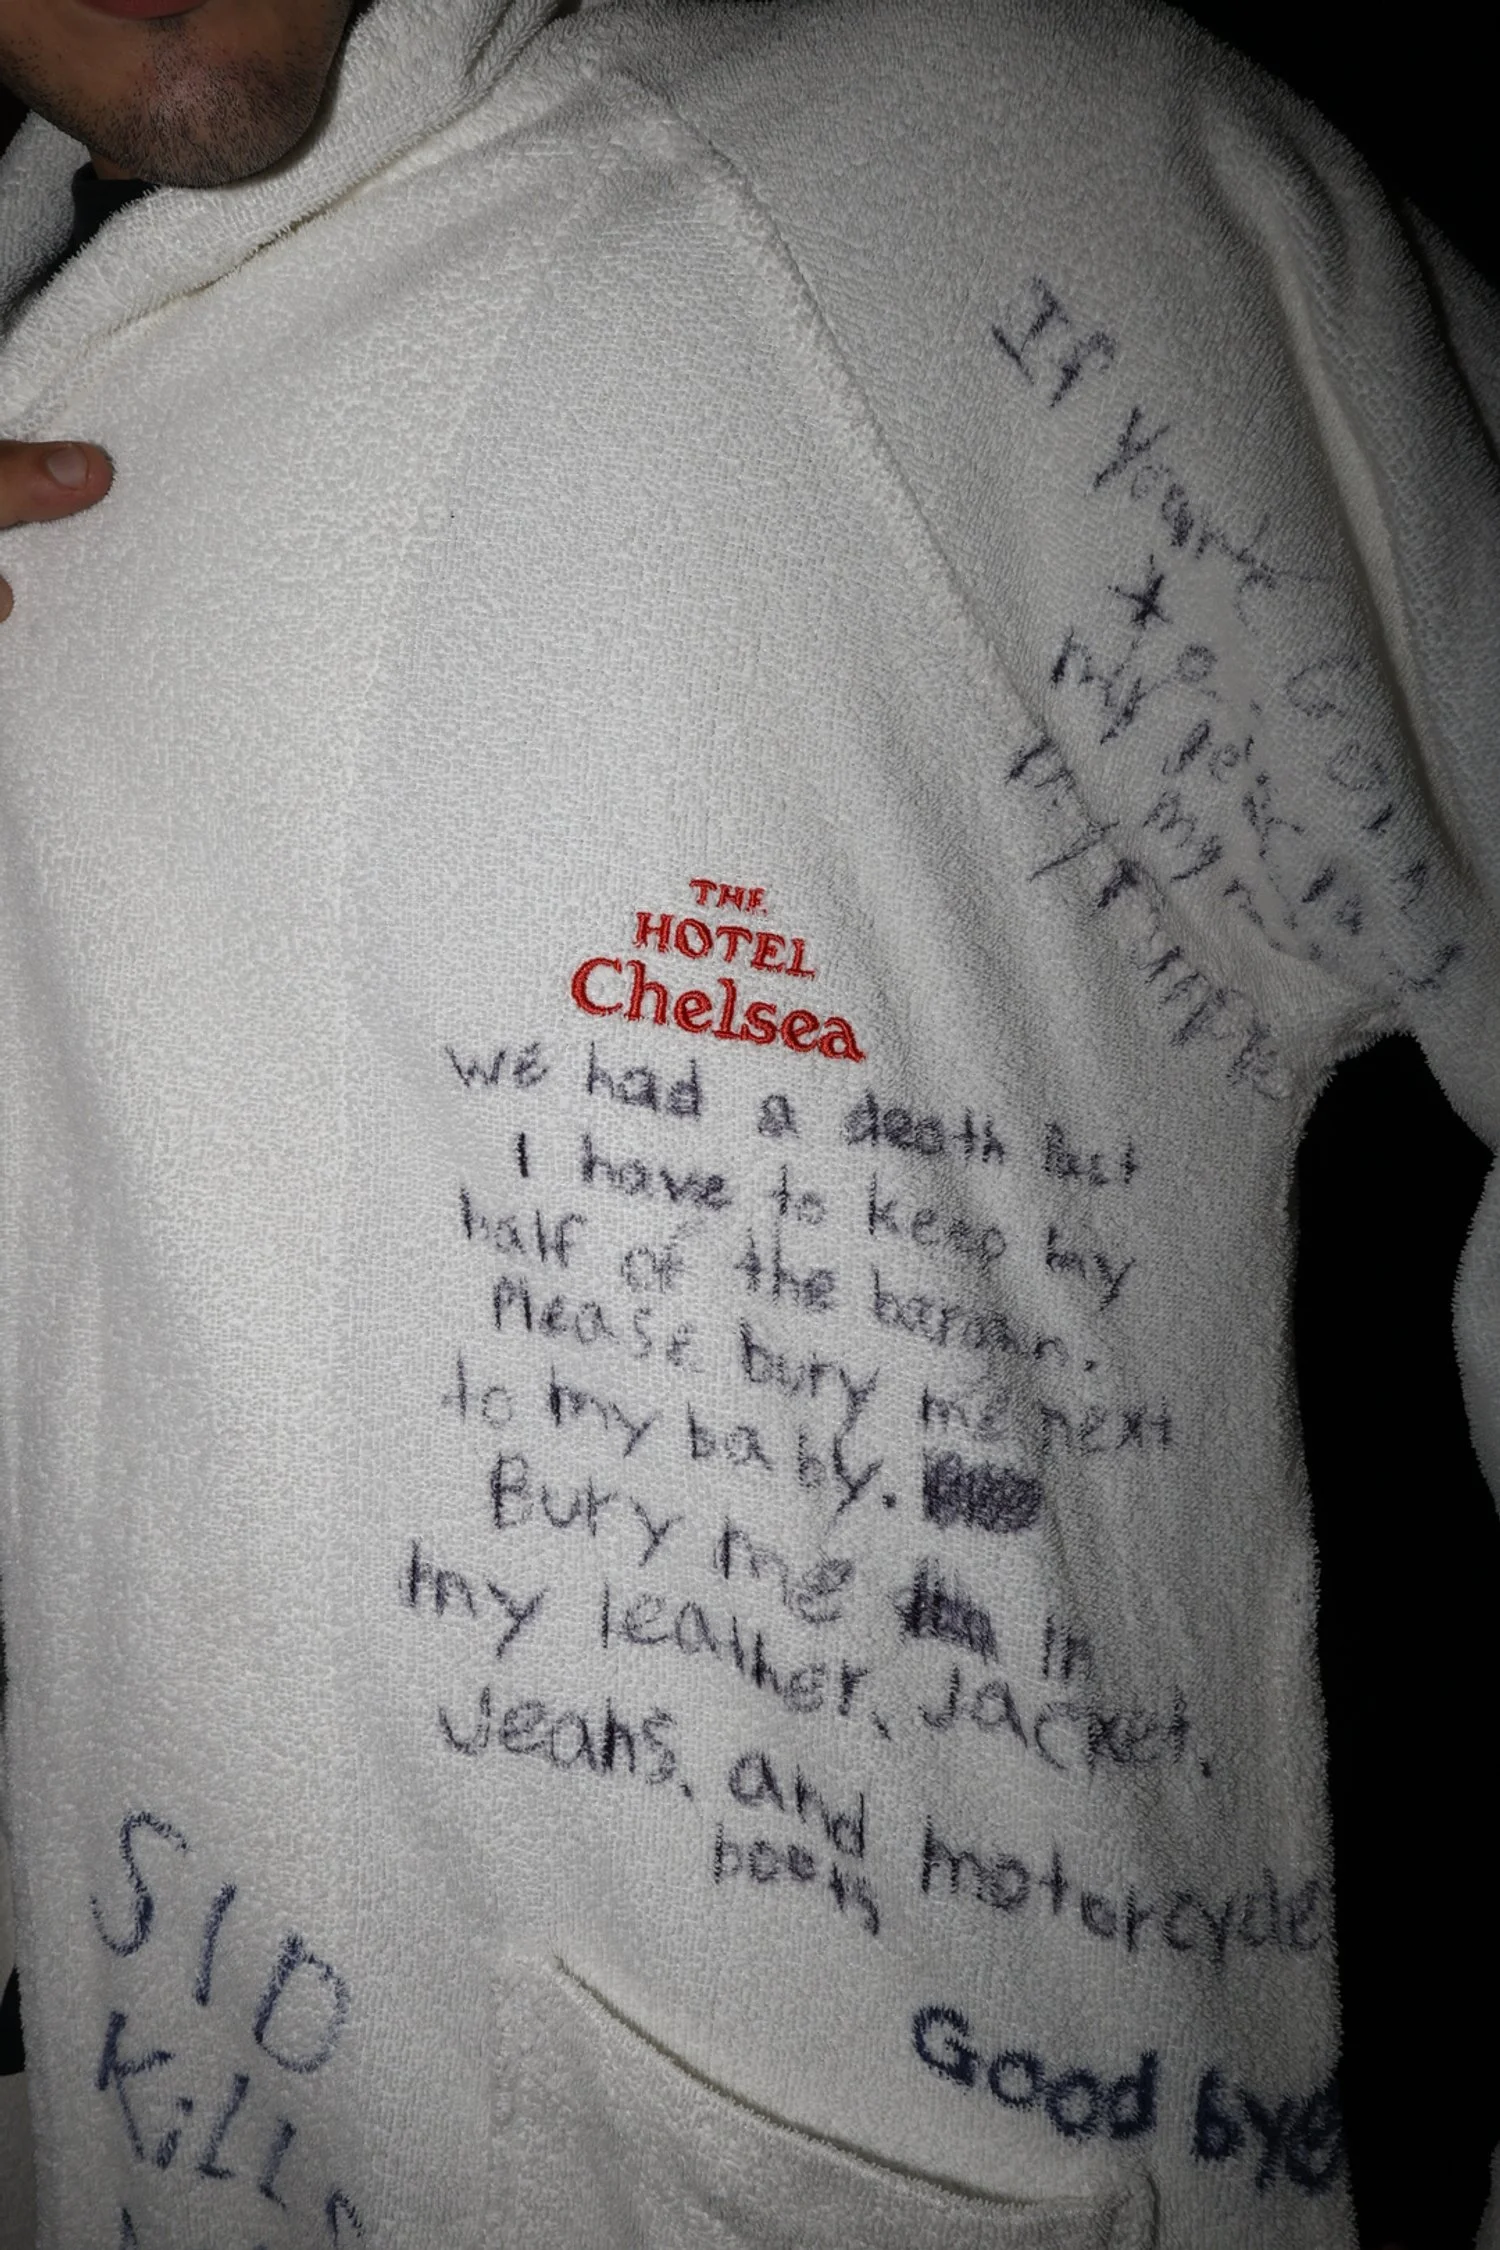 If Your
my
THE
HOTEL
Chelsea
We had a death Pact
I have to keep my
half of the bargain.
Please bury me next
to my baby.
Bury me in
my leather, Jacket,
Jeans, and motorcycle
boots
Good bye
SID
Kills